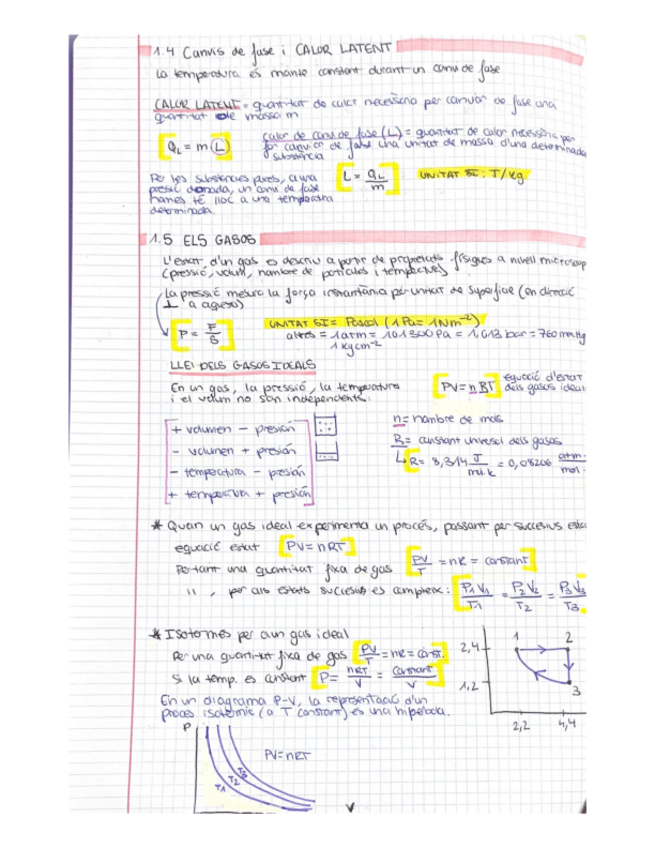 1.4 Canvis de fase i CALOR LATENT
La temperatura es manté constant durant un canvi de fase
CALOR LATENT = quantitat de calor necessària per canviar de fase una
quantitat de massa m
Q_L = m L
calor de canvi de fase (L) = quantitat de calor necessària per
fer canviar de fase una unitat de massa d'una determinada
substància
Per les substàncies pures, a una
pressió donada, un canvi de fase
només té lloc a una temperatura
determinada.
L = Q_L / m
UNITAT SI: J/kg
1.5 ELS GASOS
L'estat d'un gas es descriu a partir de propietats físiques a nivell microscop
(pressió, volum, nombre de partícules i temperatura)
La pressió mesura la força instantània per unitat de superfície (en direcció
⊥ a aquesta)
P = F / S
UNITAT SI = Pascal (1Pa = 1Nm⁻²)
altres = 1atm = 101300Pa = 1,013 bar = 760mmHg
1kgcm⁻²
LLEI DELS GASOS IDEALS
En un gas, la pressió, la temperatura
i el volum no són independents.
PV = nRT
equació d'estat
dels gasos ideal
+ volumen - presión
- volumen + presión
- temperatura - presión
+ temperatura + presión
n = nombre de mols
R = constant universal dels gasos
R = 8,314 J / mol·K = 0,08206 atm· / mol·
* Quan un gas ideal experimenta un procés, passant per successius esta
equació estat PV = nRT
Pertant una quantitat fixa de gas PV / T = nR = constant
" , per als estats successius es compleix: P1V1 / T1 = P2V2 / T2 = P3V3 / T3
* Isotermes per a un gas ideal
Per una quantitat fixa de gas PV / T = nR = const.
Si la temp. es constant P = nRT / V = constant / V
En un diagrama P-V, la representació d'un
procés isotèrmic (a T constant) és una hipèrbola.
2,4
1,2
1 2
3
2,2 4,4
P
PV = nRT
T1 T2 T3
V